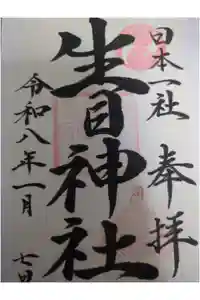 日本一社
奉拝
生目神社
令和八年一月
七日